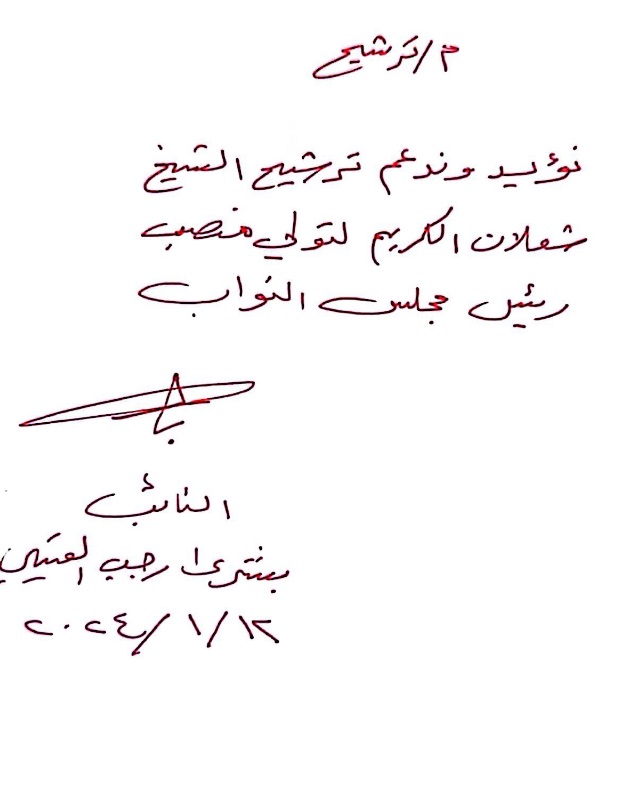 م/ترشيح
نؤيد وندعم ترشيح الشيخ
شعلان الكريم لتولي منصب
رئيس مجلس النواب
النائب
بشرى رجب
٢٠٢٤/١/١٢